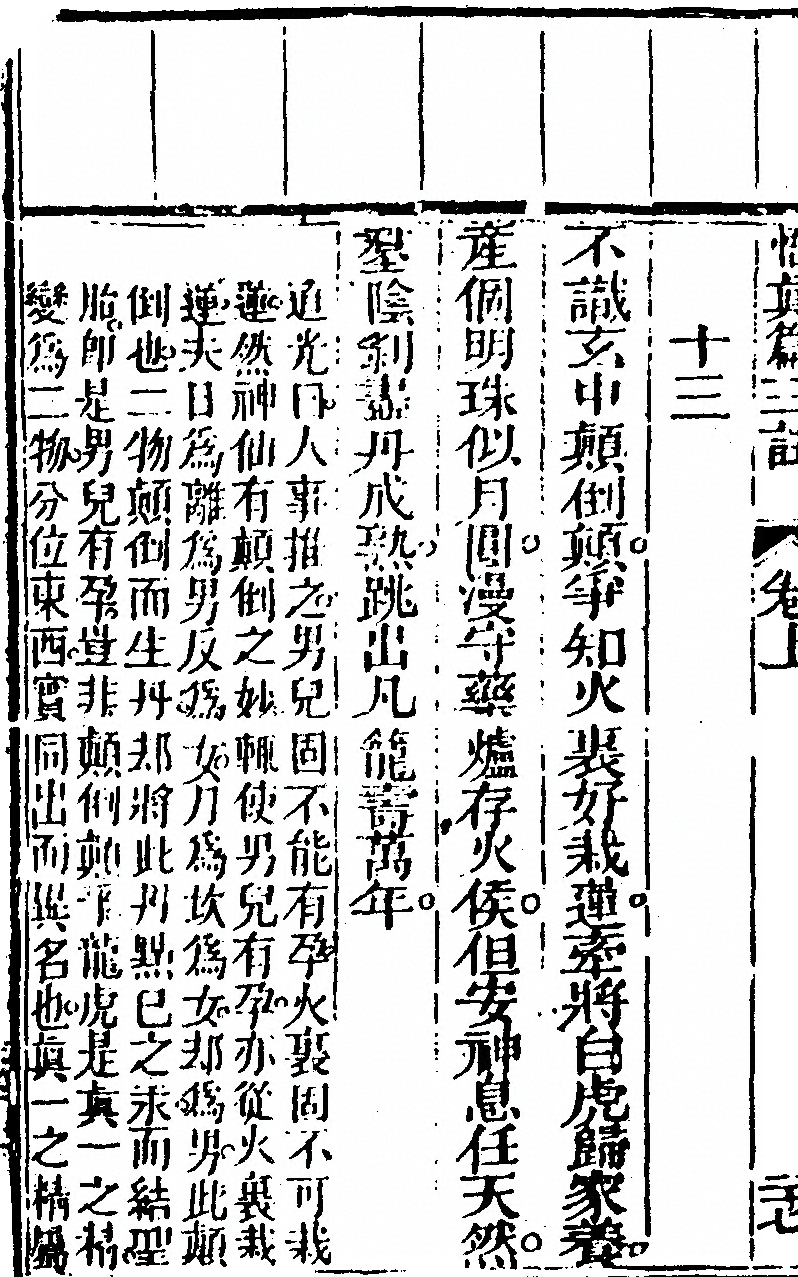 悟真篇三註 卷上
十三
不識玄中顛倒顛。爭知火裏好栽蓮。牽將白虎歸家養。
產個明珠似月圓。漫守藥爐存火候。但安神息任天然。
羣陰剝盡丹成熟。跳出凡籠壽萬年。
道光曰。人事推之。男兒固不能有孕。火裏固不可栽
蓮。然神仙有顛倒之妙。輒使男兒有孕。亦從火裏栽
蓮。夫日爲離爲男反爲女。月爲坎爲女。却爲男。此顛
倒也。二物顛倒而生丹却將此丹點己之汞而結聖
胎。卽是男兒有孕。豈非顛倒顛乎龍虎是真一之精。
變爲二物。分位東西。實同出而異名也。真一之精爲